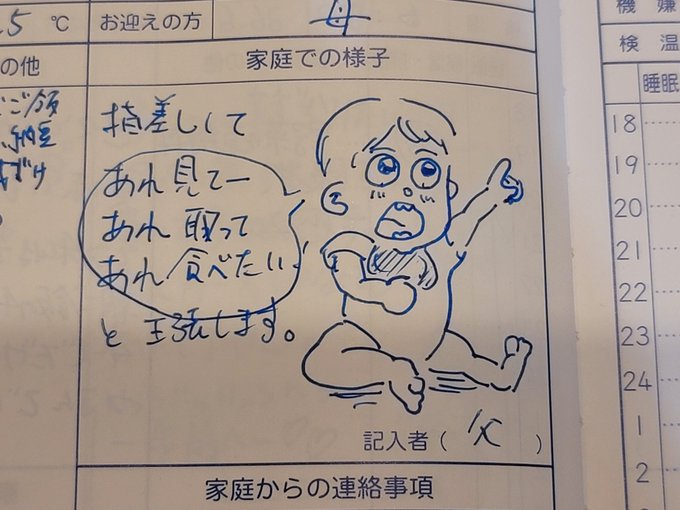 .5 ℃
お迎えの方
母
機嫌
検温
の他
家庭での様子
睡眠
ご飯
納豆
指差しして
あれ 見てー
あれ 取って
あれ 食べたい!
と 主張します。
18
19
20
21
22
23
24
1
2
記入者( 父 )
家庭からの連絡事項